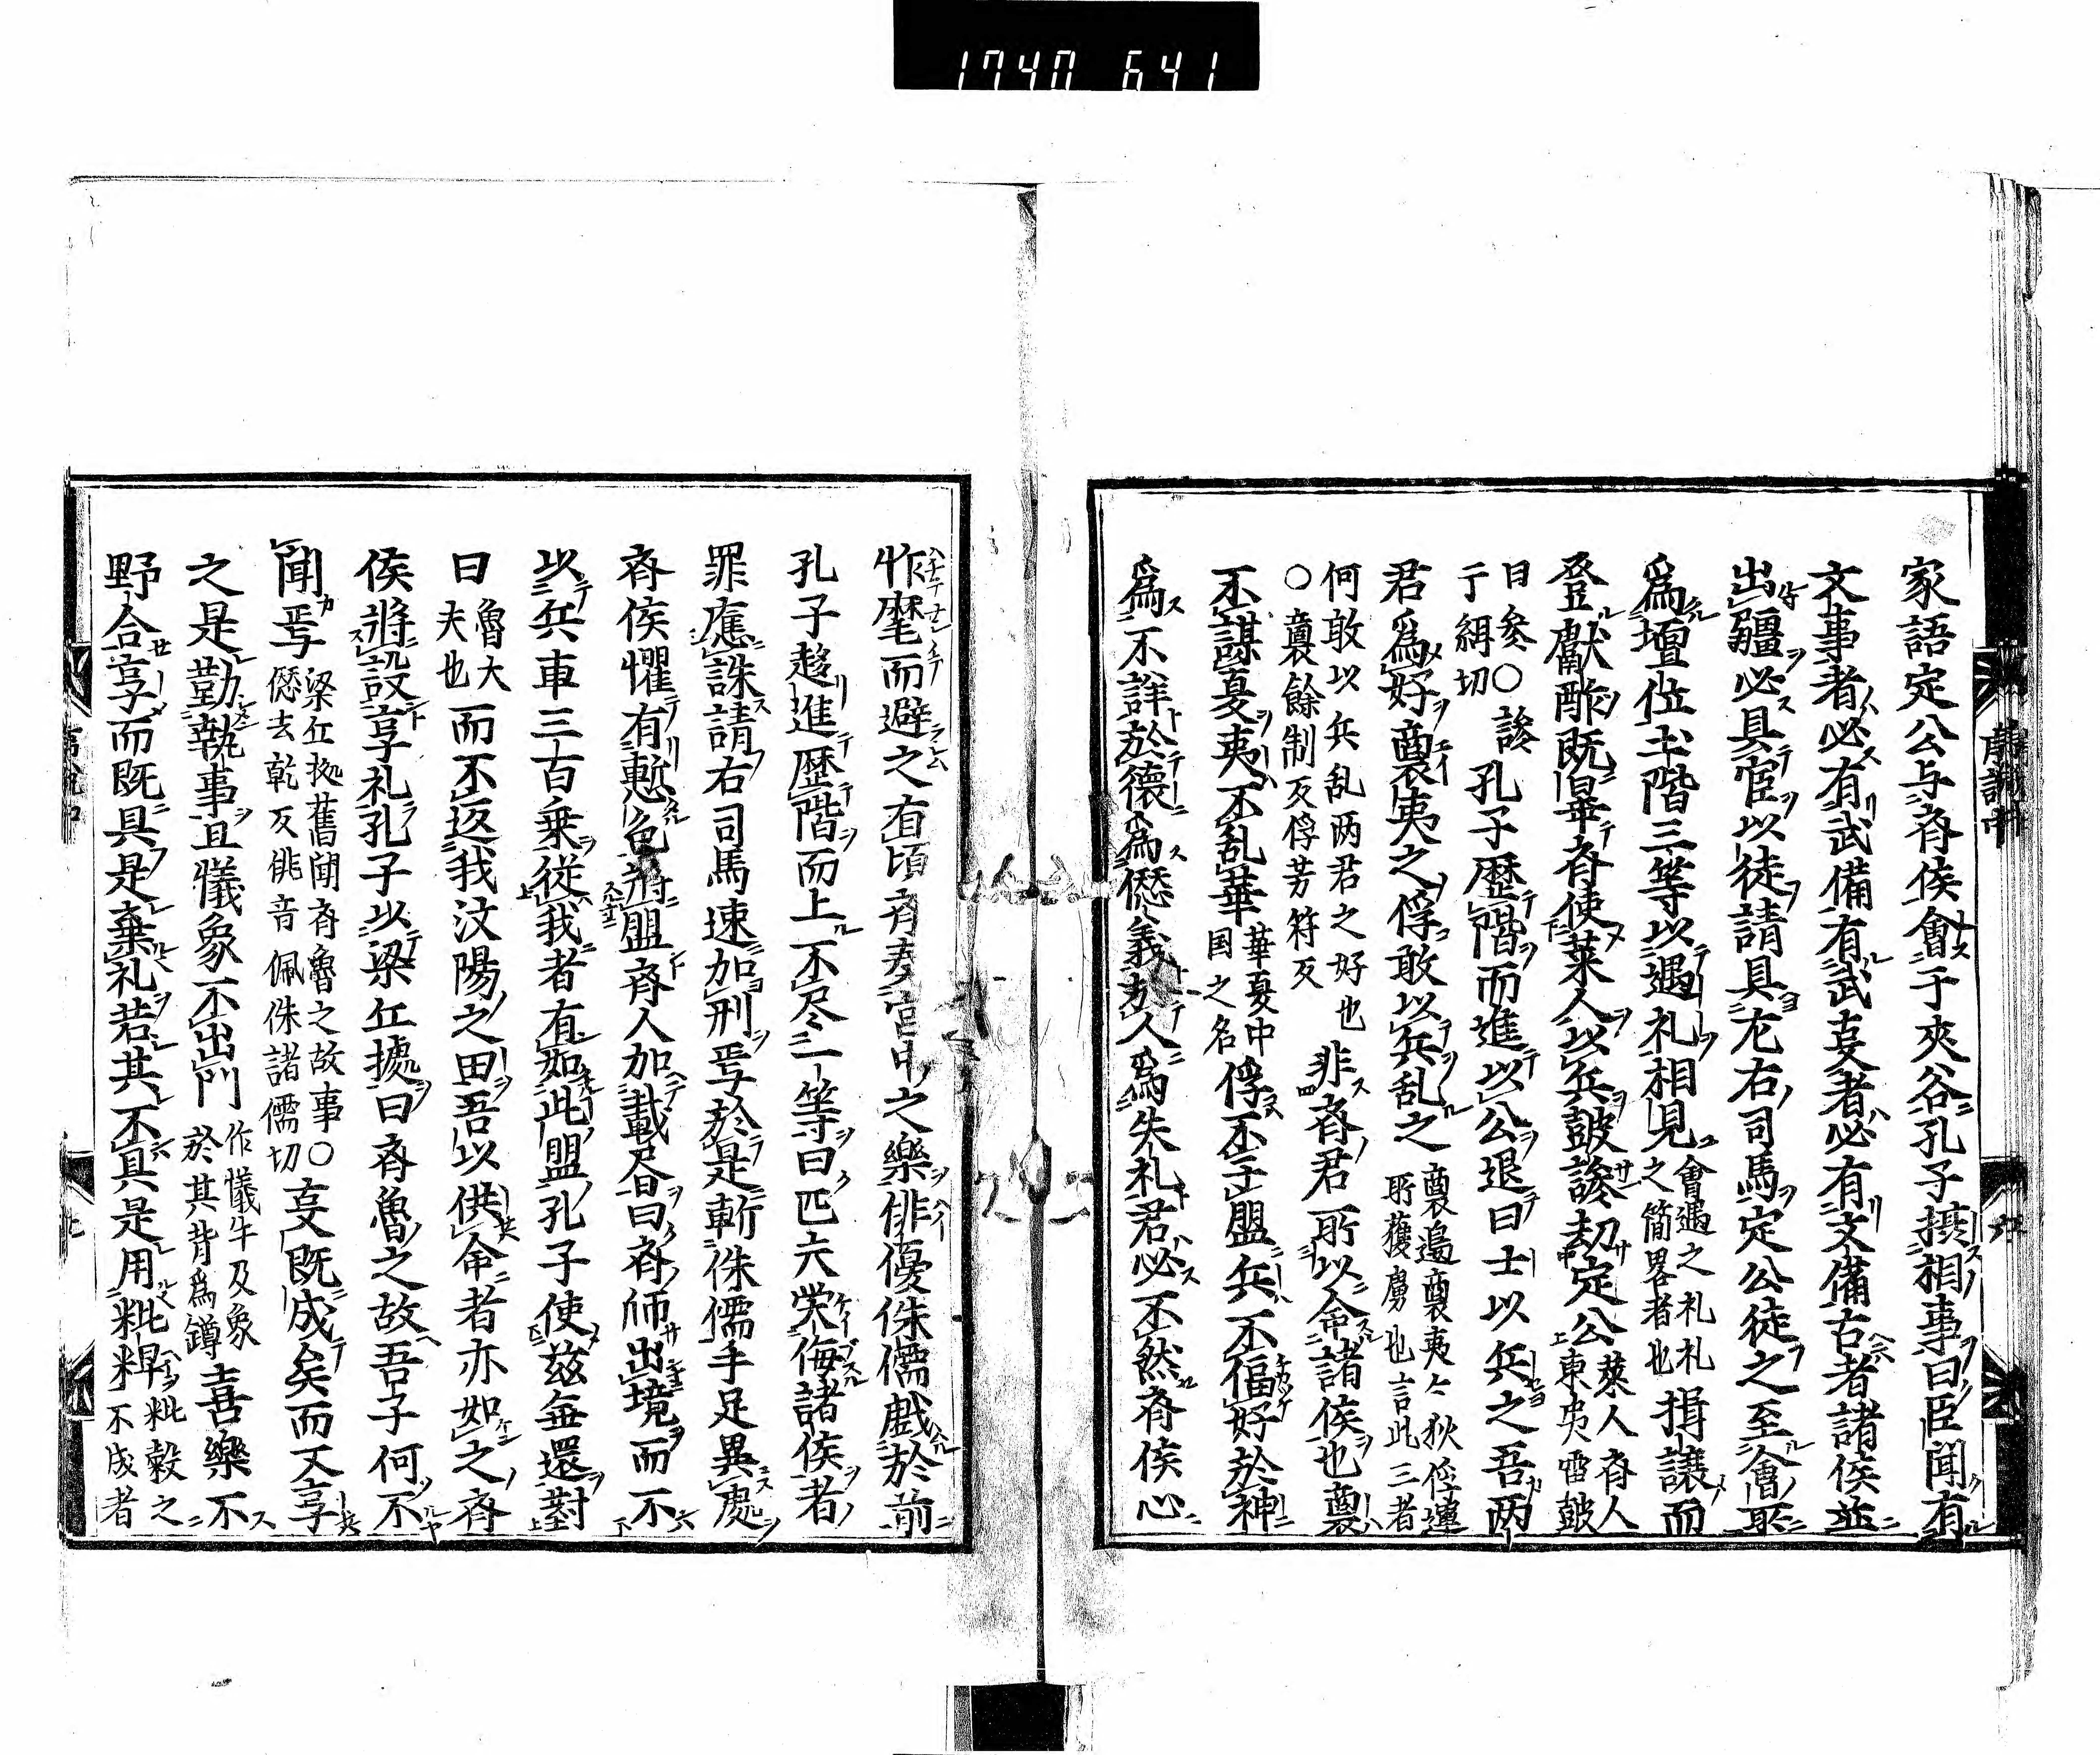 1740 641
家語定公与斉侯會于夾谷孔子摂相事曰臣聞有
文事者必有武備有武叓者必有文備古者諸侯並
出疆必具官以徒請具左右司馬定公徒之至會所
為壇位土階三等以遇礼相見會遇之礼礼之簡畧者也揖譲而
登獻酢既畢斉使莱人以兵鼓譟劫定公莱人斉人東夷雷鼓
曰参〇譟
于緝切孔子歴階而進以公退曰士以兵之吾両
君為好裔夷之俘敢以兵乱之裔邉裔夷々狄俘連所獲虜也言此三者
何敢以兵乱両君之好也
〇裔餘制反俘芳符反非斉君所以命諸侯也裔
不謀夏夷不乱華華夏中国之名俘不干盟兵不偪好於神
為不詳於徳為愆義於人為失礼君必不然斉侯心
怍麾而避之有頃斉奏宮中之樂俳優侏儒戯於前
孔子趍進歴階而上不尽一等曰匹夫熒侮諸侯者
罪應誅請右司馬速加刑焉於是斬侏儒手足異處
斉侯懼有慙色将盟斉人加載昏曰斉師出境而不
以兵車三百乗従我者有如此盟孔子使茲無還對
曰魯大夫也而不返我汶陽之田吾以供命者亦如之斉
侯將設享礼孔子以梁丘據曰斉魯之故吾子何不
聞焉梁丘拠舊聞斉魯之故事〇愆去乾反俳音佩侏諸儒切叓既成矣而又享
之是勤執事且犧象不出門作犧牛及象於其背為罇喜樂不
野合享而既具是棄礼若其不具是用粃粺粃穀之不成者